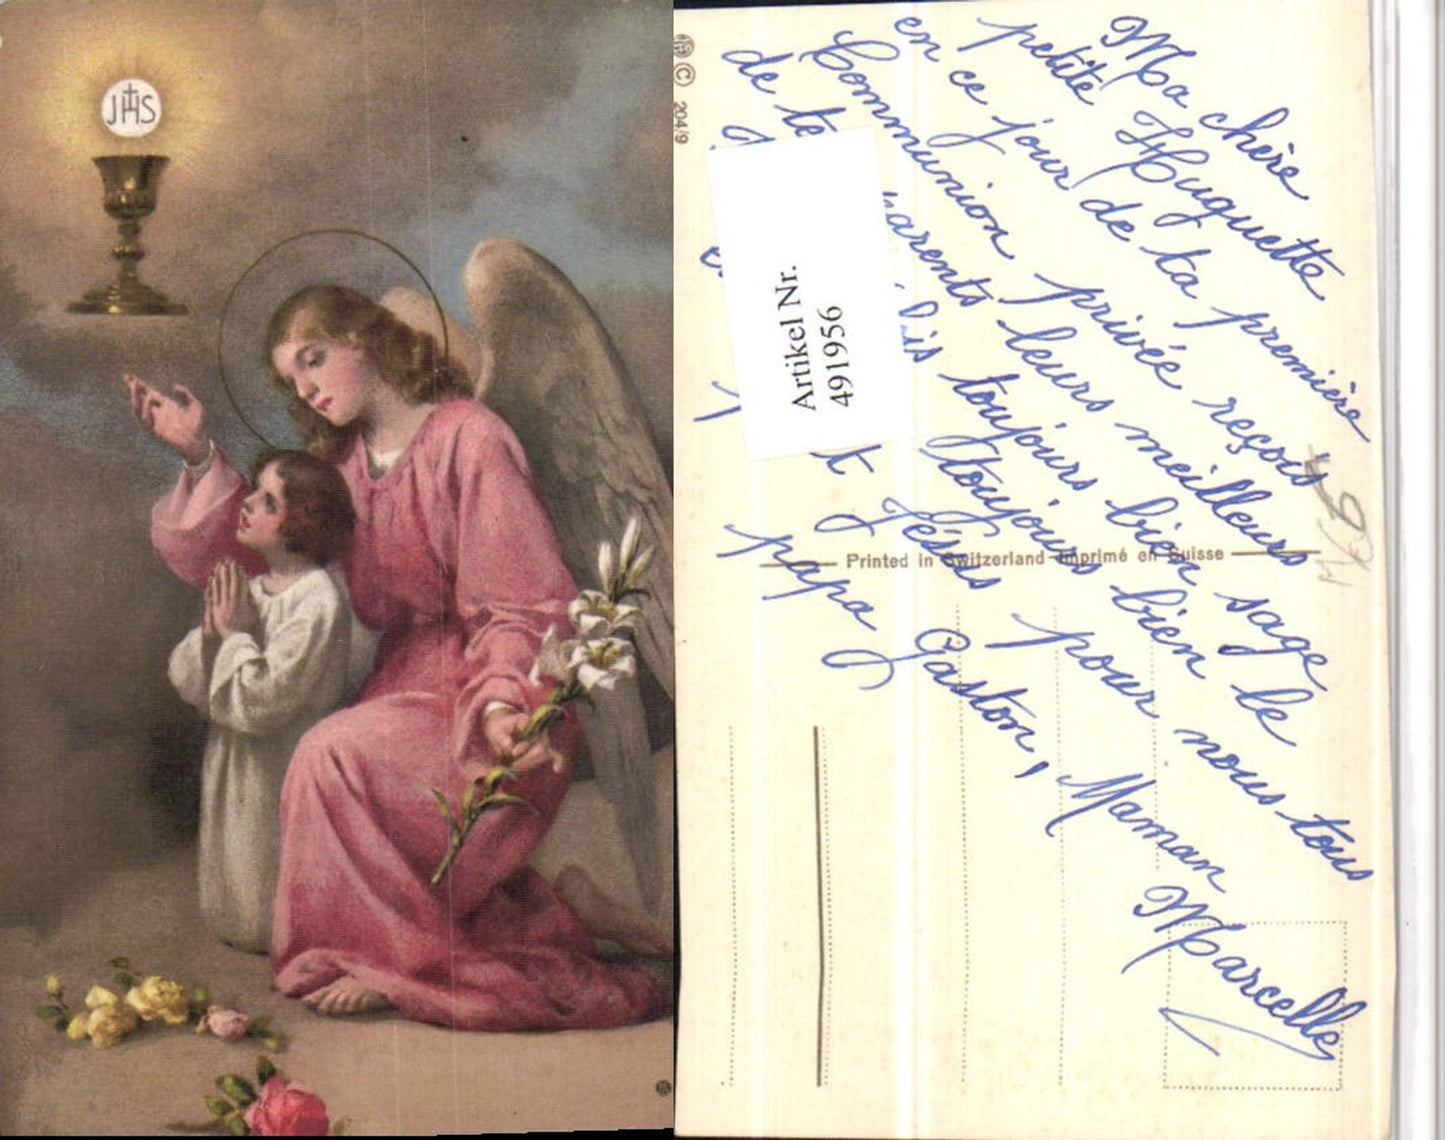 JHS
204/9
Ma chère
petite Huguette
en ce jour de ta première
Communion privée reçois
de te arents leurs meilleurs
toujours bien sage
toujours bien le
t Jésus pour nous tous
papa Gaston, Maman
Marcelle
Artikel Nr.
491956
Printed in Switzerland - Imprimé en Suisse